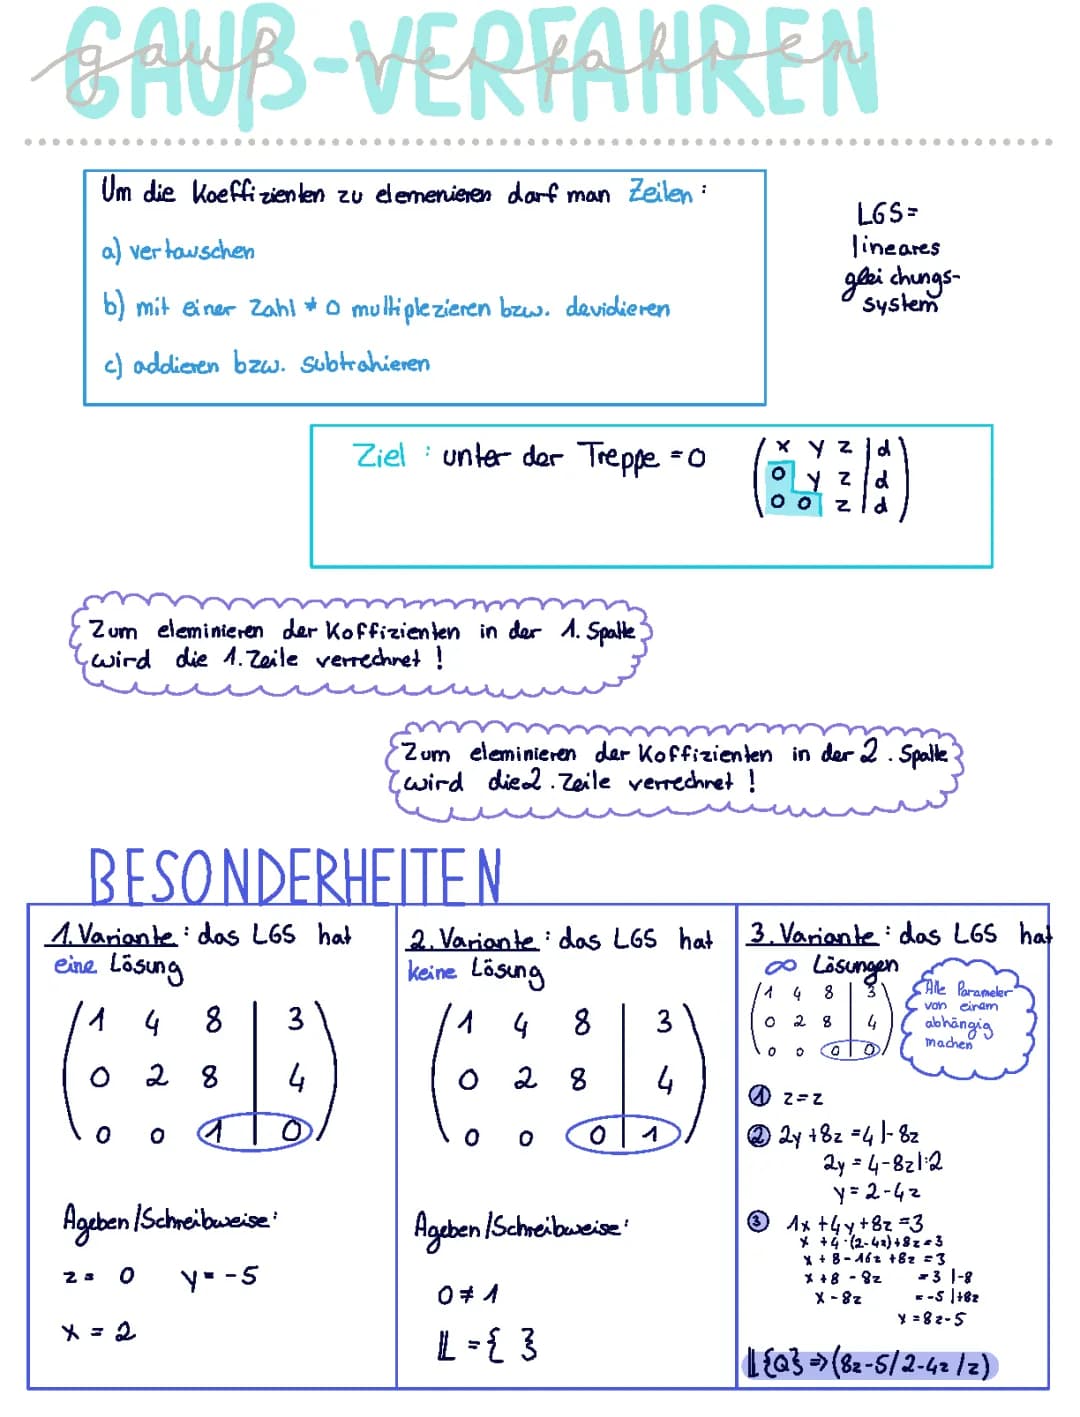 GAUß-VERFAHREN
gauß-verfahren
Um die Koeffizienten zu elemenieren darf man Zeilen:
a) vertauschen
b) mit einer Zahl ≠ 0 multiplezieren bzw. devidieren
c) addieren bzw. subtrahieren
LGS=
lineares
gleichungs-
system
Ziel: unter der Treppe = 0
x y z | d
0 y z | d
0 0 z | d
Zum eleminieren der Koffizienten in der 1. Spalte
wird die 1. Zeile verrechnet!
Zum eleminieren der Koffizienten in der 2. Spalte
wird die 2. Zeile verrechnet!
BESONDERHEITEN
1. Variante: das LGS hat
eine Lösung
1 4 8 | 3
0 2 8 | 4
0 0 1 | 0
Ageben/Schreibweise:
z = 0 y = -5
x = 2
2. Variante: das LGS hat
keine Lösung
1 4 8 | 3
0 2 8 | 4
0 0 0 | 1
Ageben/Schreibweise:
0 ≠ 1
𝕃 = { }
3. Variante: das LGS hat
∞ Lösungen
1 4 8 | 3
0 2 8 | 4
0 0 0 | 0
Alle Parameter
von einem
abhängig
machen
① z=z
② 2y+8z=4 |-8z
2y=4-8z |:2
y=2-4z
③ 1x+4y+8z=3
x+4·(2-4z)+8z=3
x+8-16z+8z=3
x+8-8z =3 |-8
x-8z =-5 |+8z
x=8z-5
𝕃{Q} ⇒ (8z-5/2-4z/z)